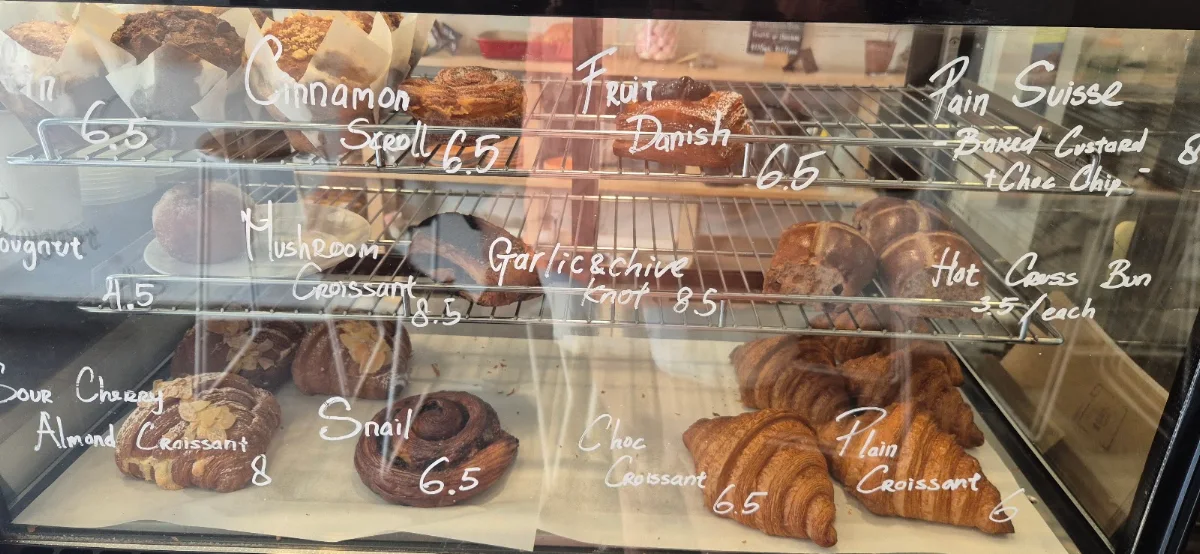 Cinnamon
Scroll 6.5
6.5
Fruit
Danish
6.5
Pain Suisse
- Baked Custard
+ Choc Chip -
4.5
Mushroom
Croissant
8.5
Garlic & chive
Knot 8.5
Hot Cross Bun
3.5/each
Sour Cherry
Almond Croissant
8
Snail
6.5
Choc
Croissant
6.5
Plain
Croissant
6